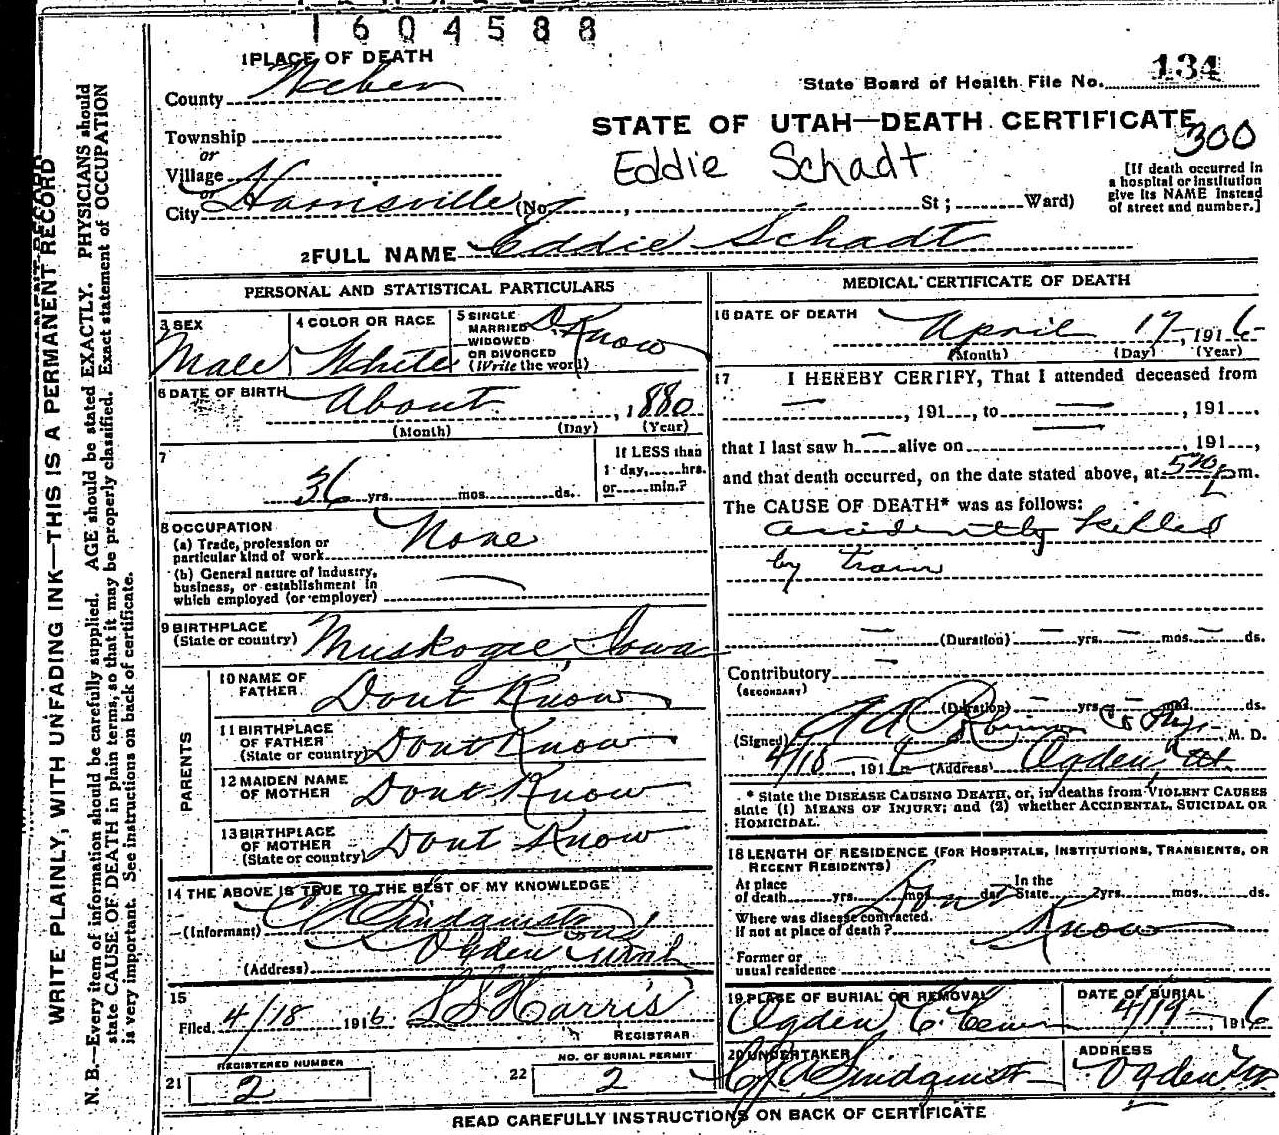 1604588
1 PLACE OF DEATH
County Weber
State Board of Health File No. 134
Township
STATE OF UTAH—DEATH CERTIFICATE
300
or
Village
Eddie Schadt
or
City Harrisville (No. , St; Ward)
[If death occurred in
a hospital or institution
give its NAME instead
of street and number.]
2 FULL NAME Eddie Schadt
PERSONAL AND STATISTICAL PARTICULARS
3 SEX
Male
4 COLOR OR RACE
White
5 SINGLE
MARRIED
WIDOWED
OR DIVORCED
(Write the word)
D. Know
6 DATE OF BIRTH
About , 1880
(Month) (Day) (Year)
7
36 yrs. mos. ds.
If LESS than
1 day, hrs.
or min.?
8 OCCUPATION
(a) Trade, profession or
particular kind of work None
(b) General nature of industry,
business, or establishment in
which employed (or employer)
9 BIRTHPLACE
(State or country) Muskogee, Iowa
PARENTS
10 NAME OF
FATHER Dont Know
11 BIRTHPLACE
OF FATHER
(State or country) Dont Know
12 MAIDEN NAME
OF MOTHER Dont Know
13 BIRTHPLACE
OF MOTHER
(State or country) Dont Know
14 THE ABOVE IS TRUE TO THE BEST OF MY KNOWLEDGE
(Informant) Lindquist
(Address) Ogden Utah
15
Filed 4/18 1916. Harris
REGISTRAR
REGISTERED NUMBER
21 2
NO. OF BURIAL PERMIT
22 2
MEDICAL CERTIFICATE OF DEATH
16 DATE OF DEATH
April 17, 1916
(Month) (Day) (Year)
17 I HEREBY CERTIFY, That I attended deceased from
— , 191 , to — , 191 ,
that I last saw h — alive on — , 191 ,
and that death occurred, on the date stated above, at 5 p m.
The CAUSE OF DEATH* was as follows:
accidently killed
by train
— (Duration) — yrs. — mos. — ds.
Contributory —
(SECONDARY)
(Duration) yrs. mos. ds.
(Signed) M. D.
4/18, 1916 (Address) Ogden, Ut
* State the DISEASE CAUSING DEATH, or, in deaths from VIOLENT CAUSES
state (1) MEANS OF INJURY; and (2) whether ACCIDENTAL, SUICIDAL OR
HOMICIDAL.
18 LENGTH OF RESIDENCE (FOR HOSPITALS, INSTITUTIONS, TRANSIENTS, OR
RECENT RESIDENTS)
At place
of death yrs. mos. ds.
In the
State yrs. mos. ds.
Dont
Where was disease contracted.
if not at place of death? Know
Former or
usual residence
19 PLACE OF BURIAL OR REMOVAL
Ogden C. Cem
DATE OF BURIAL
4/19, 1916
20 UNDERTAKER
Lindquist
ADDRESS
Ogden
READ CAREFULLY INSTRUCTIONS ON BACK OF CERTIFICATE
WRITE PLAINLY, WITH UNFADING INK—THIS IS A PERMANENT RECORD
N. B.—Every item of information should be carefully supplied. AGE should be stated EXACTLY. PHYSICIANS should
state CAUSE OF DEATH in plain terms, so that it may be properly classified. Exact statement of OCCUPATION
is very important. See instructions on back of certificate.